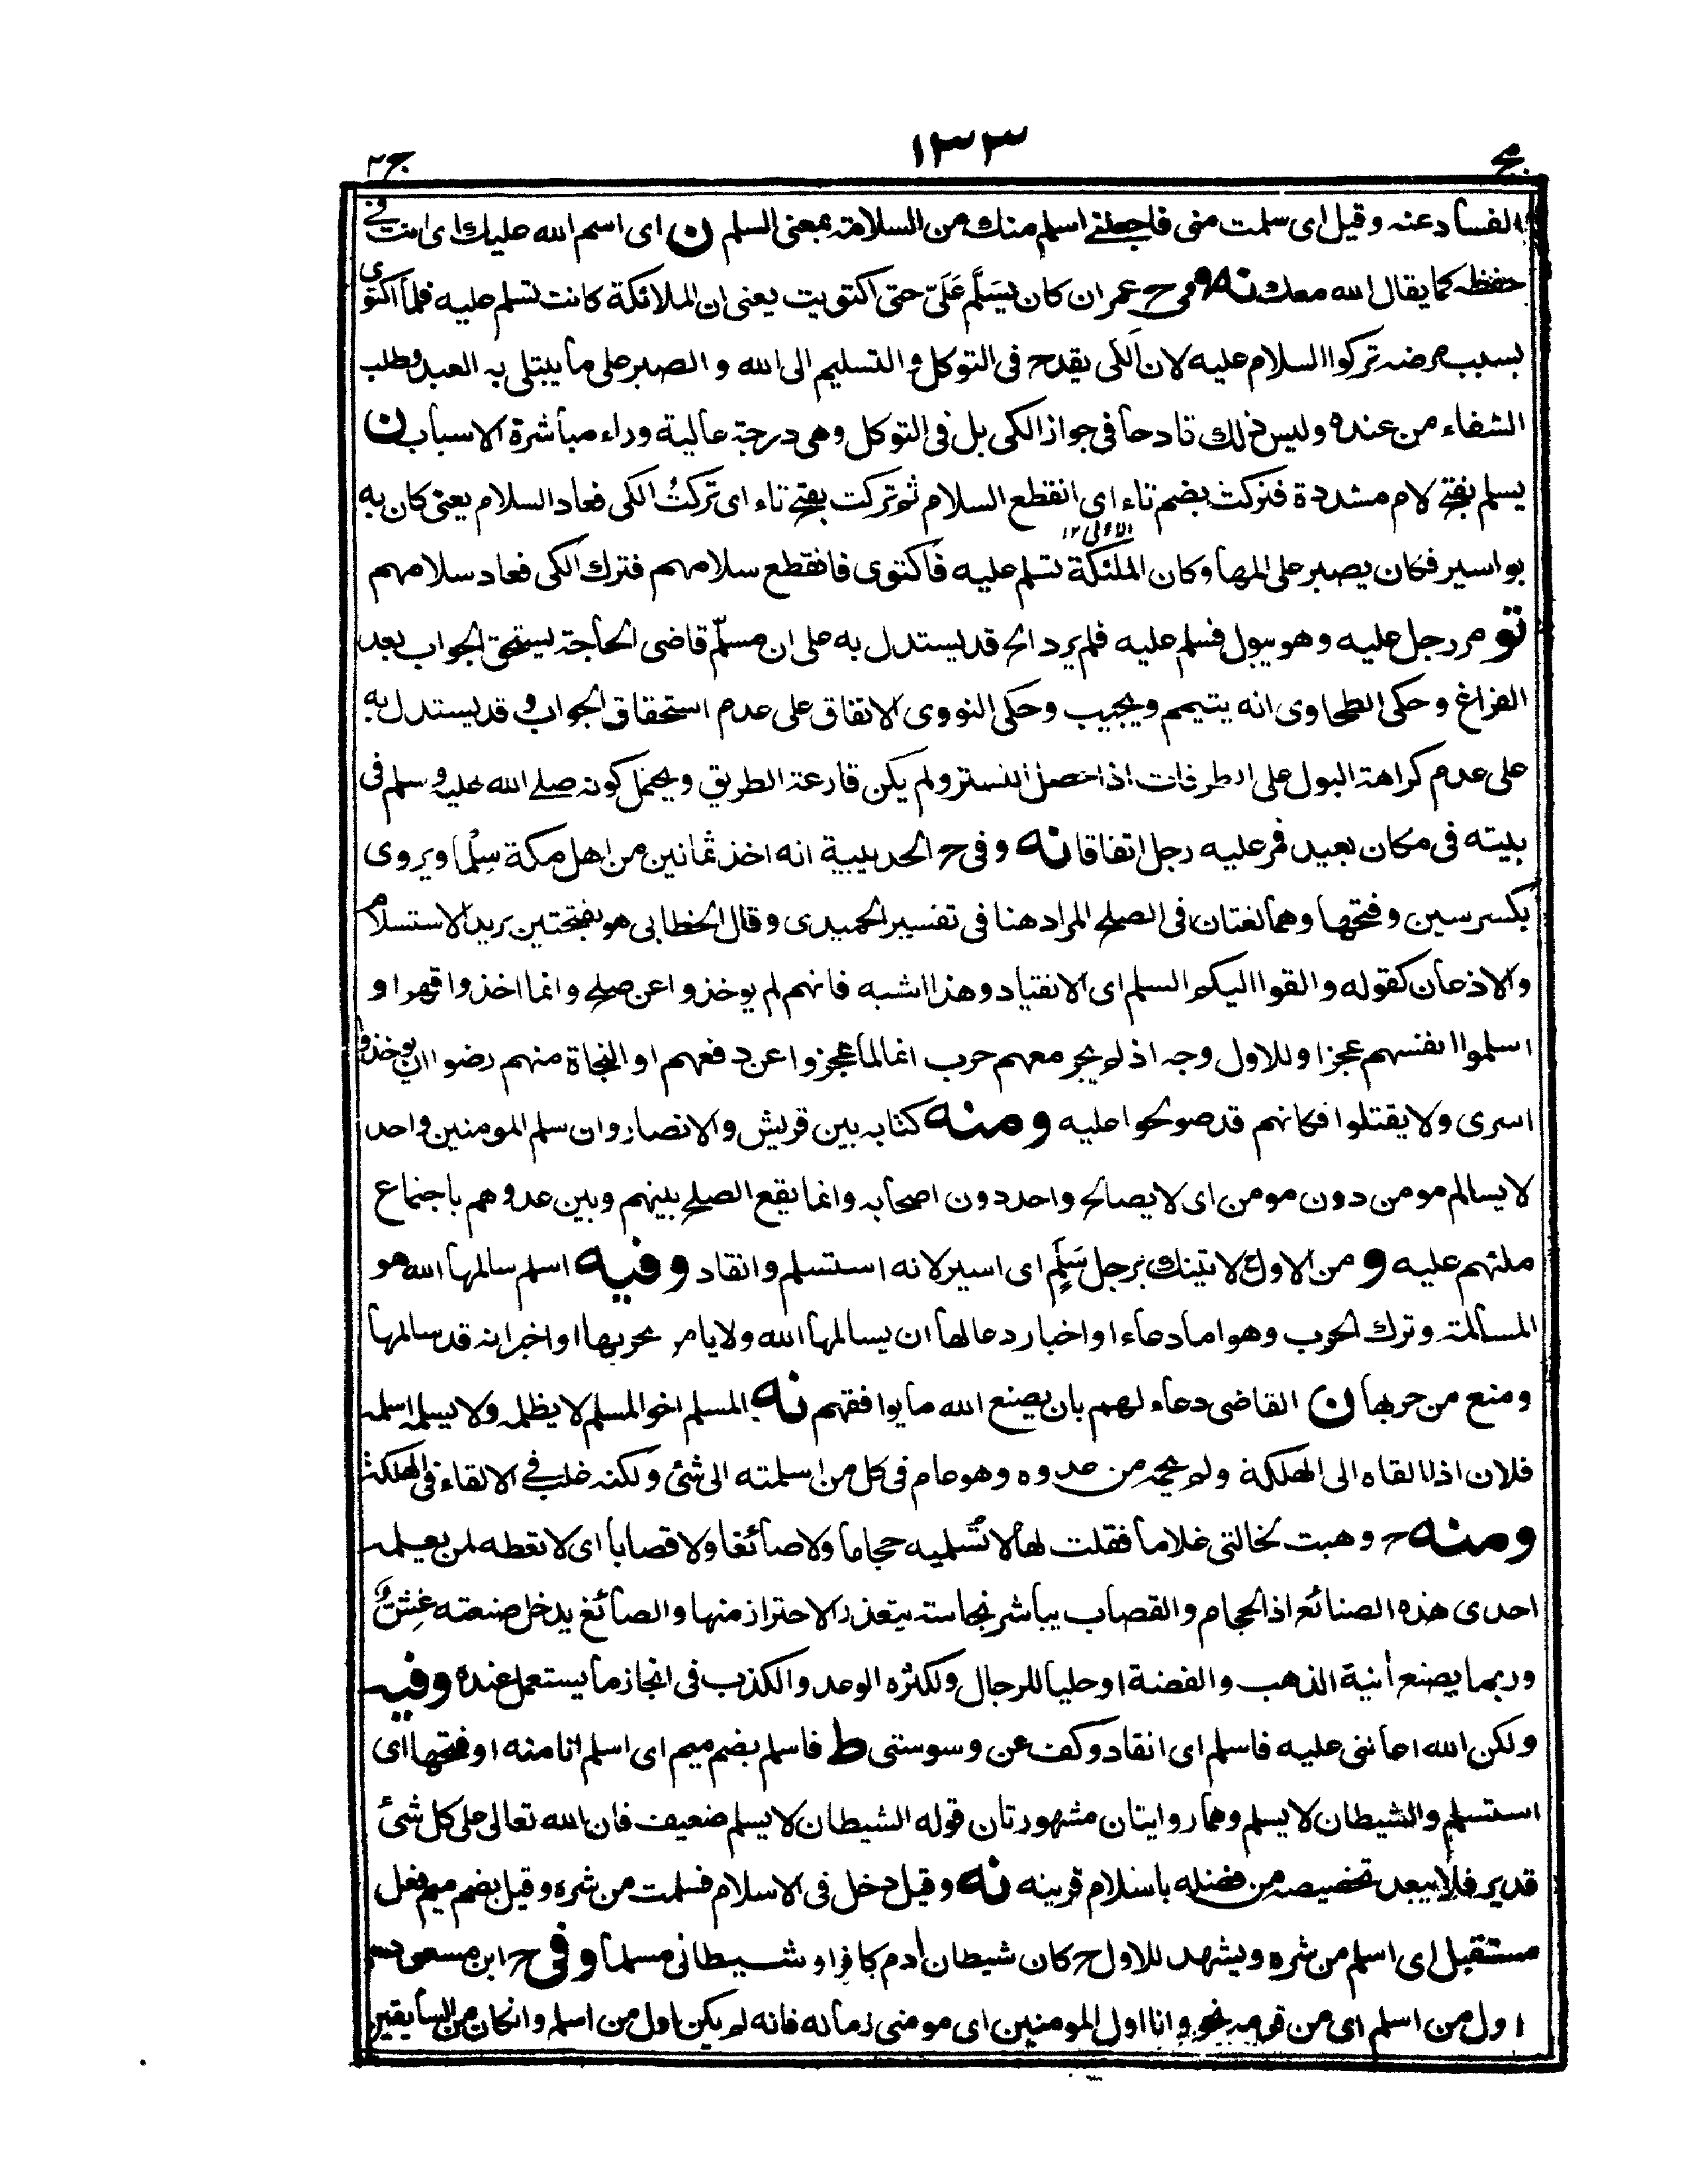 مج ١٣٣ ج٢
الفساد عنه وقيل اى سلمت منى فاجعلنى اسلم منك من السلامة بمعنى السلم ن اى اسم الله عليك اى انت فى
حفظه كما يقال الله معك نه وفى ح عمران كان يسَلَّم عَلَىَّ حتى اكتويت يعنى ان الملائكة كانت تسلم عليه فلما اكتوى
بسبب مرضه تركوا السلام عليه لان الكى يقدح فى التوكل والتسليم الى الله و الصبر على ما يبتلى به العبد وطلب
الشفاء من عنده وليس ذلك قادحا فى جواز الكى بل فى التوكل وهى درجة عالية وراء مباشرة الاسباب ن
يسلم بفتح لام مشددة فتركت بضم تاء اى انقطع السلام ثم تركت بفتح تاء اى تركتُ الكى فعاد السلام يعنى كان به
الاولى ١٢
بواسير فكان يصبر على المها وكان الملئكة تسلم عليه فاكتوى فانقطع سلامهم فترك الكى فعاد سلامهم
تو مر رجل عليه وهو يبول فسلم عليه فلم يرد الخ قد يستدل به على ان مسلّم قاضى الحاجة يستحق الجواب بعد
الفراغ وحكى الطحاوى انه يتيمم ويجيب وحكى النووى الاتفاق على عدم استحقاق الجواب و قد يستدل به
على عدم كراهة البول على الطرقات اذا حصل التستر ولم يكن قارعة الطريق ويحتمل كونه صلے الله عليه وسلم فى
بيته فى مكان بعيد فمر عليه رجل اتفاقا نه وفى ح الحديبية انه اخذ ثمانين من اهل مكة سِلْما ويروى
بكسر سين وفتحها وهما لغتان فى الصلح المراد هنا فى تفسير الحميدى وقال الخطابى هو بفتحتين يريد الاستسلام
والاذعان كقوله والقوا اليكم السلم اى الانقياد وهذا اشبه فانهم لم يوخذوا عن صلح وانما اخذوا قهرا و
اسلموا انفسهم عجزا وللاول وجه اذ لم يجر معهم حرب انما لما عجزوا عن دفعهم او النجاة منهم رضوا ان يوخذوا
اسرى ولا يقتلوا فكانهم قد صولحوا عليه ومنه كتابه بين قريش والانصار وان سلم المومنين واحد
لا يسالم مومن دون مومن اى لا يصالح واحد دون اصحابه وانما يقع الصلح بينهم وبين عدوهم باجتماع
ملئهم عليه و من الاول ح لاتينك برجل سَلَمٍ اى اسير لانه استسلم وانقاد وفيه اسلم سالمها الله هو
المسالمة وترك الحرب وهو اما دعاء او اخبار دعا لها ان يسالمها الله ولا يامر بحربها او اخبر انه قد سالمها
ومنع من حربها ن القاضى دعاء لهم بان يصنع الله ما يوافقهم نه المسلم اخو المسلم لا يظلمه ولا يسلمه اسلمه
فلان اذا القاه الى الهلكة ولم يحمه من عدوه وهو عام فى كل من اسلمته الى شئ ولكنه غلب فى الالقاء فى الهلكة
ومنه ح وهبت لخالتى غلاما فقلت لها لا تُسلميه حجاما ولا صائغا ولا قصابا اى لا تعطه لمن يعلمه
احدى هذه الصنائع اذ الحجام والقصاب يباشر نجاسته يتعذر الاحتراز منها والصائغ يدخل صنعته غِشٌّ
وربما يصنع أنية الذهب والفضة او حليا للرجال ولكثره الوعد والكذب فى انجاز ما يستعمل عنده وفيه
ولكن الله اعاننى عليه فاسلم اى انقاد وكف عن وسوستى ط فاسلم بضم ميم اى اسلم انا منه او فتحها اى
استسلم والشيطان لا يسلم وهما روايتان مشهورتان قوله الشيطان لا يسلم ضعيف فان الله تعالى على كل شئ
قدير فلا يبعد تخصيصه من فضله باسلام قرينه نه وقيل دخل فى الاسلام فسلمت من شره وقيل بضم ميم فعل
مستقبل اى اسلم من شره ويشهد للاول ح كان شيطان أدم كافرا و شيطانى مسلما وفى ح ابن مسعود
اول من اسلم اى من قومه نحو وانا اول المومنين اى مومنى زمانه فانه لم يكن اول من اسلم وانكان من السابقين